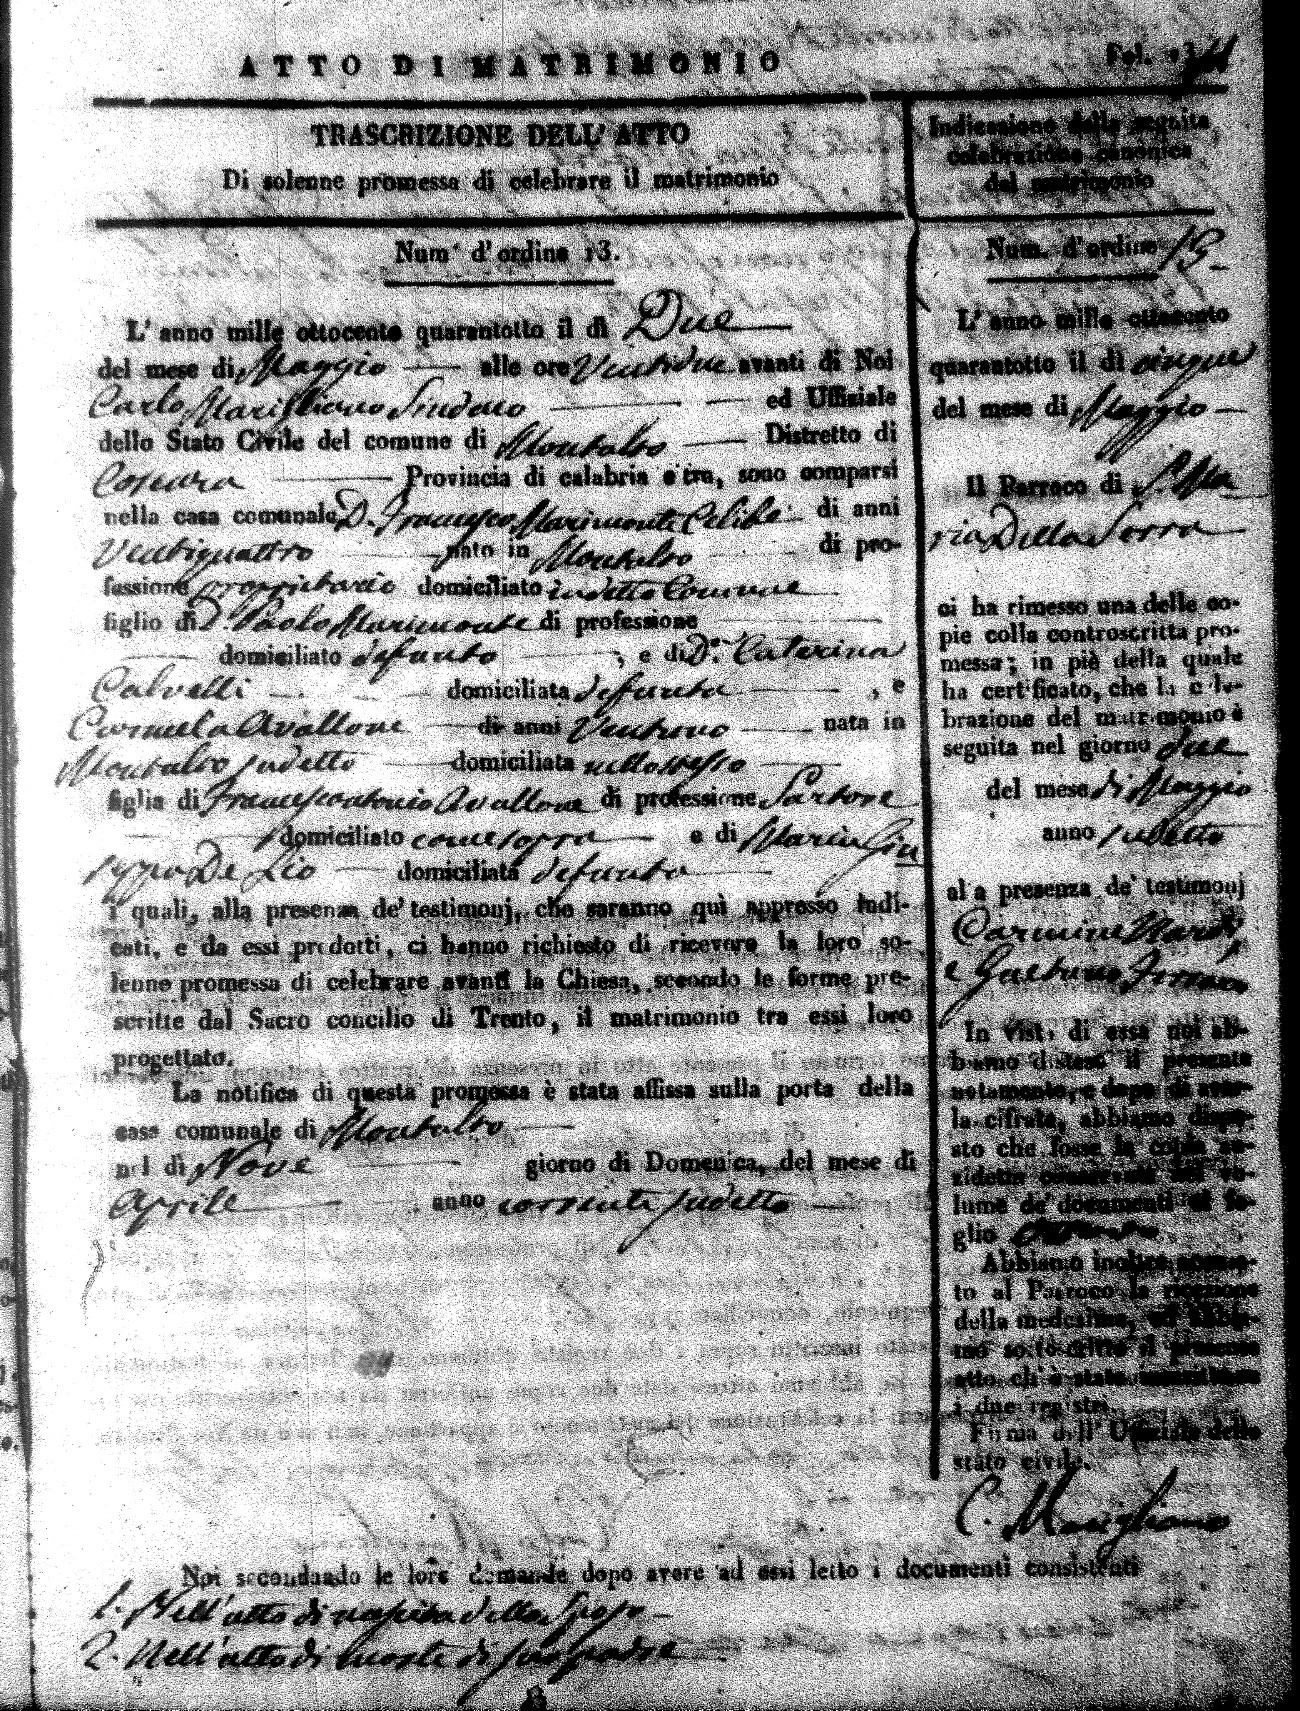 ATTO DI MATRIMONIO
Fol. 13
TRASCRIZIONE DELL' ATTO
Di solenne promessa di celebrare il matrimonio
Num° d' ordine 13.
L' anno mille ottocento quarantotto il dì Due
del mese di Maggio alle ore Ventidue avanti di Noi
Carlo Marigliano Sindaco ed Uffiziale
dello Stato Civile del comune di Montalto Distretto di
Cosenza Provincia di calabria citra, sono comparsi
nella casa comunale D. Francesco Marimonte Celibe di anni
Ventiquattro nato in Montalto di pro-
fessione proprietario domiciliato in detto Comune
figlio di D. Paolo Marimonte di professione
domiciliato defunto , e di D.a Caterina
Calvelli domiciliata defunta , e
Carmela Avallone di anni Ventuno nata in
Montalto sudetto domiciliata nello stesso
figlia di Francescantonio Avallone di professione Sartore
domiciliato come sopra e di Maria Giu
seppa De Lio domiciliata defunta
i quali, alla presenza de' testimonj, che saranno quì appresso indi-
cati, e da essi prodotti, ci hanno richiesto di ricevere la loro so-
lenne promessa di celebrare avanti la Chiesa, secondo le forme pre-
scritte dal Sacro concilio di Trento, il matrimonio tra essi loro
progettato.
La notifica di questa promessa è stata affissa sulla porta della
casa comunale di Montalto
nel dì Nove giorno di Domenica, del mese di
Aprile anno corrente sudetto
Indicazione della seguita
celebrazione canonica
del matrimonio
Num. d' ordine 13
L' anno mille ottocento
quarantotto il dì cinque
del mese di Maggio
Il Parroco di S. Ma
ria Della Serra
ci ha rimesso una delle co-
pie colla controscritta pro-
messa; in piè della quale
ha certificato, che la cele-
brazione del matrimonio è
seguita nel giorno due
del mese di Maggio
anno sudetto
alla presenza de' testimonj
Carmine Nardi,
e Gaetano
In vista di essa noi ab-
biamo disteso il presente
notamento, e dopo di aver-
la cifrata, abbiamo dispo-
sto che fosse la copia su-
ridetta conservata nel vo-
lume de' documenti al fo-
glio
Abbiamo inoltre accusa-
to al Parroco la ricezione
della medesima, ed abbia-
mo sottoscritto il presente
atto, ch' è stato inscritto su
i due registri.
Firma dell' Uffiziale dello
stato civile.
C. Marigliano
Noi secondando le loro domande dopo avere ad essi letto i documenti consistenti
1. Nell' atto di nascita dello Sposo
2. Nell' atto di morte di suo padre